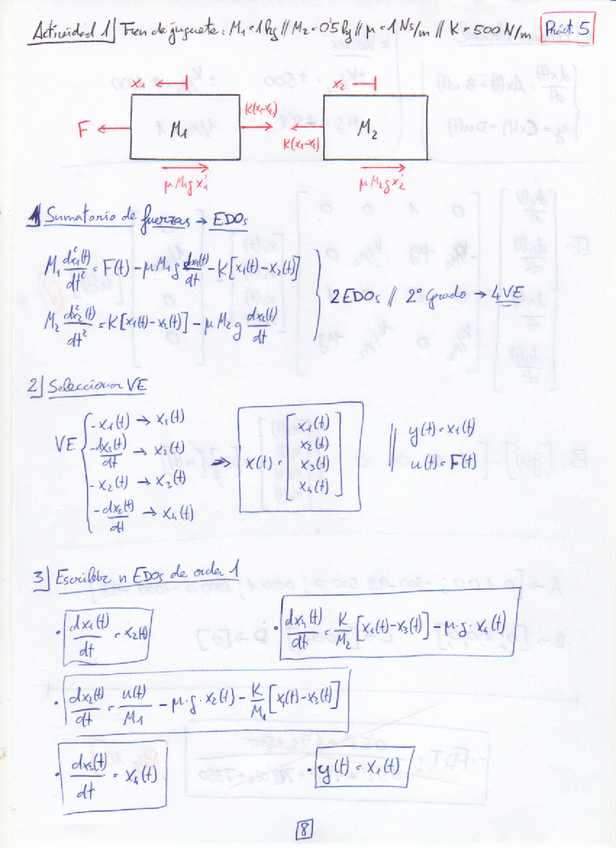 Actividad 1 Tren de juguete: M1 = 1 kg // M2 = 0'5 kg // μ = 1 Ns/m // K = 500 N/m Práct. 5
x1 x2
F M1 K(x1-x2) K(x1-x2) M2
μM1g x1' μM2g x2'
1 Sumatorio de fuerzas → EDOs
M1 d²x1(t)/dt² = F(t) - μM1g dx1(t)/dt - K[x1(t)-x2(t)]
M2 d²x2(t)/dt² = K[x1(t)-x2(t)] - μM2g dx2(t)/dt
2 EDOs // 2º grado → 4VE
2) Seleccionar VE
VE
- x1(t) → x1(t)
- dx1(t)/dt → x2(t)
- x2(t) → x3(t)
- dx2(t)/dt → x4(t)
⇒ x(t) = [x1(t) x2(t) x3(t) x4(t)]
// y(t) = x1(t)
u(t) = F(t)
3) Escribir n EDOs de orden 1
· dx1(t)/dt = x2(t)
· dx4(t)/dt = K/M2 [x1(t)-x3(t)] - μ·g·x4(t)
· dx2(t)/dt = u(t)/M1 - μ·g·x2(t) - K/M1 [x1(t)-x3(t)]
· dx3(t)/dt = x4(t)
· y(t) = x1(t)
8